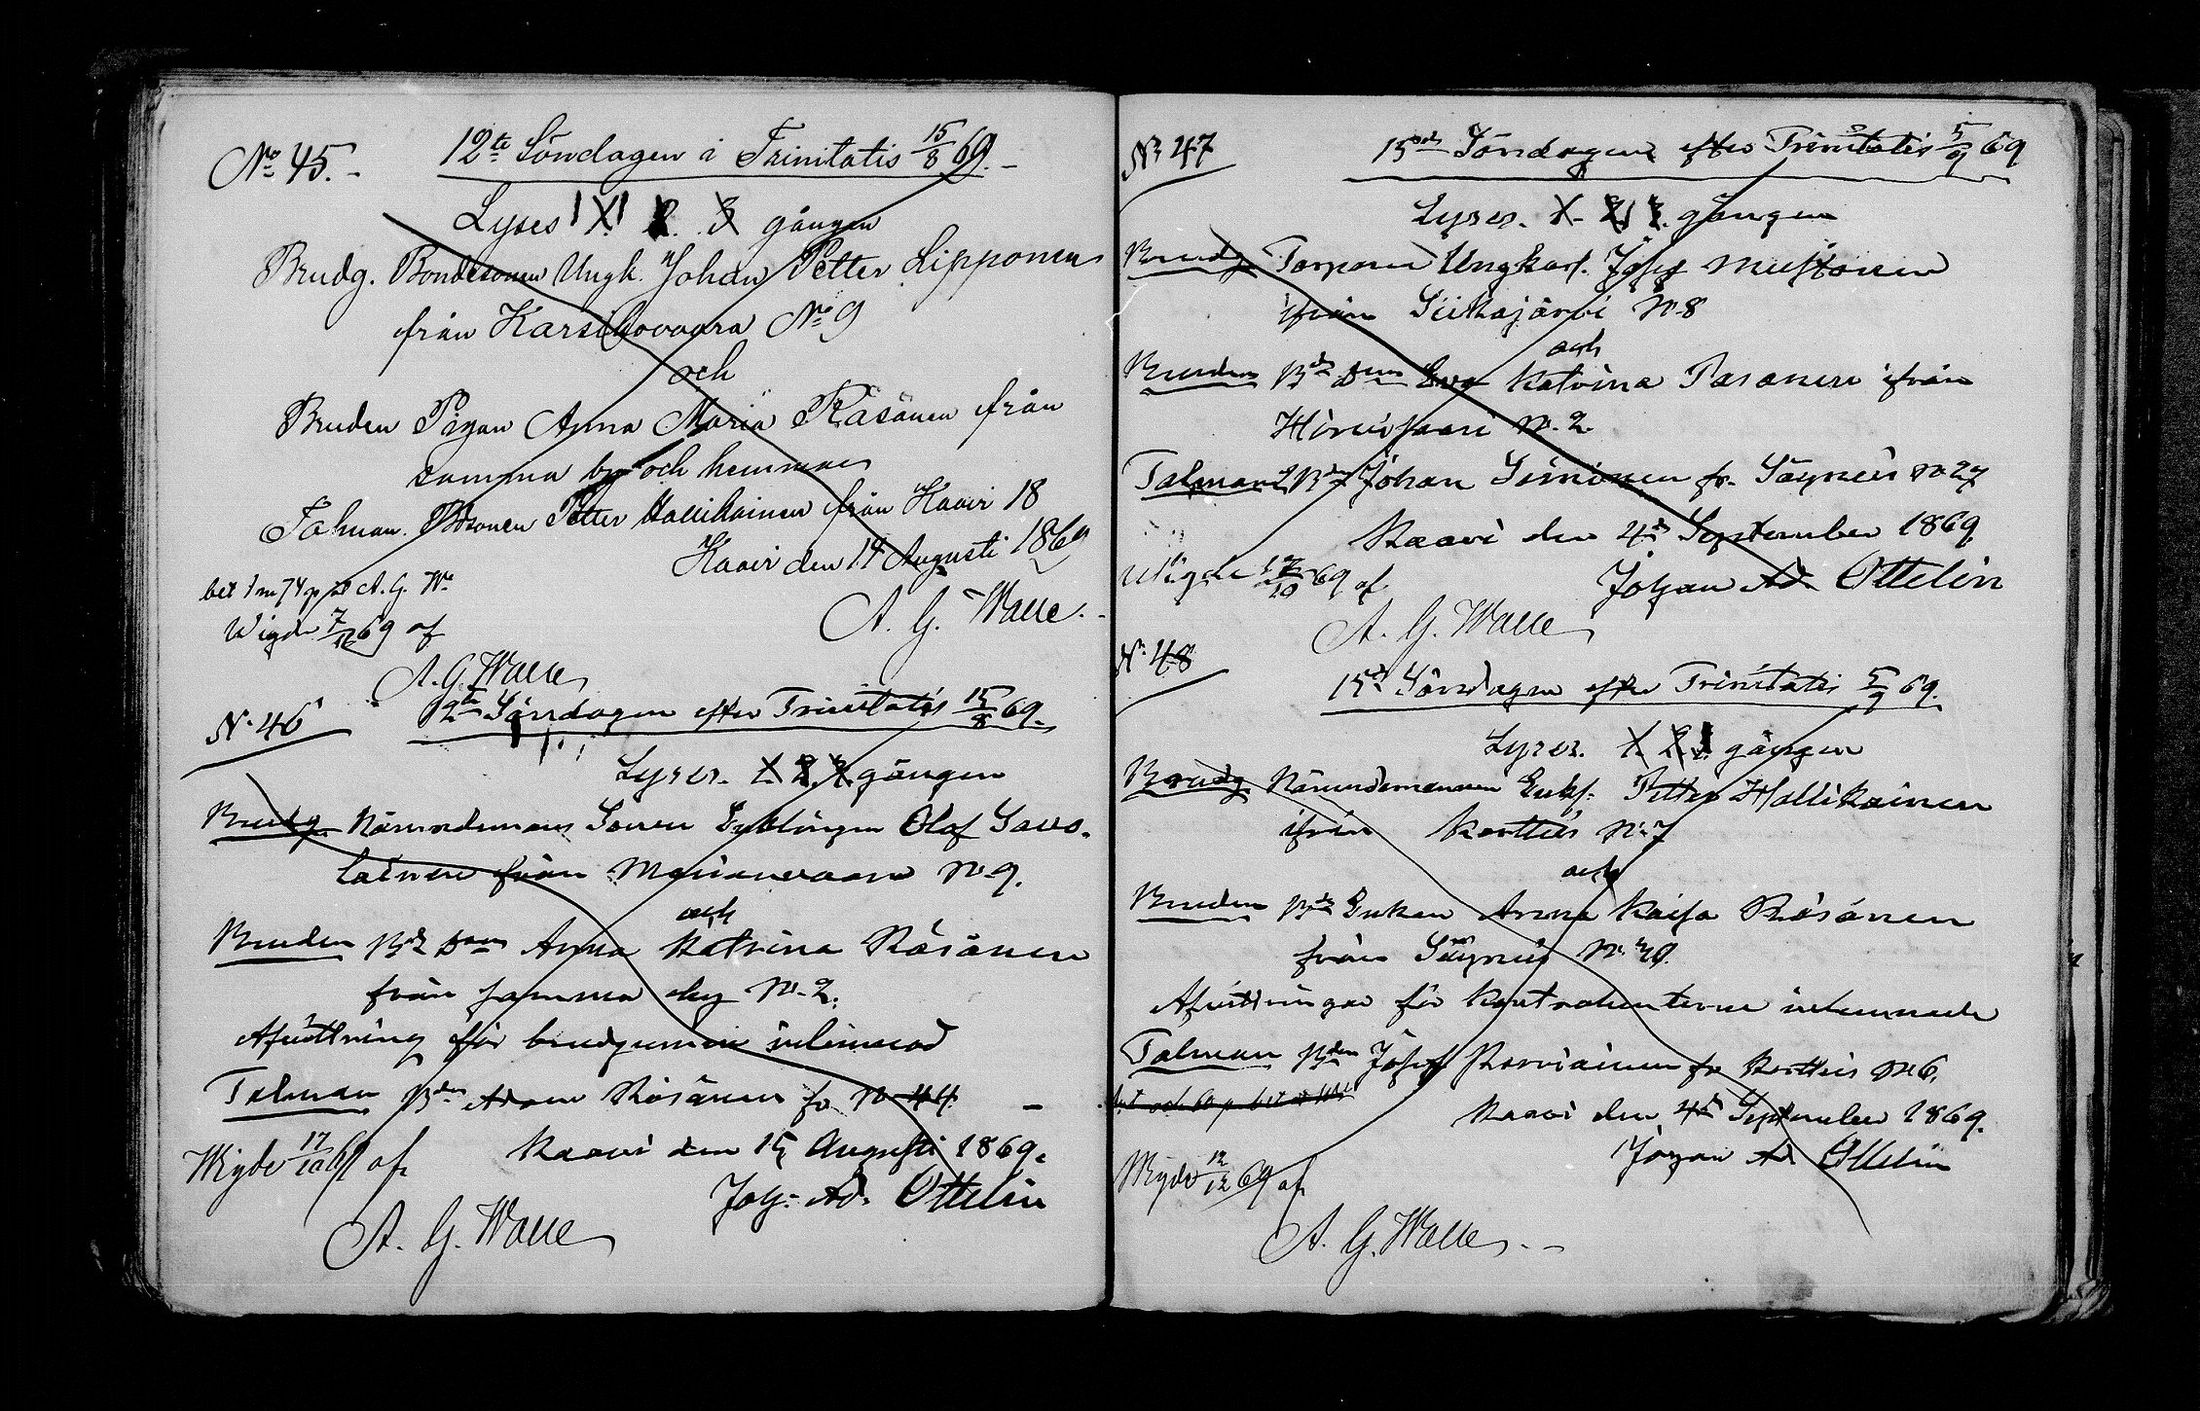 No 45.-
12te Söndagen i Trinitatis 15/8 69.-
Lyses 1. 2. 3 gången
Brudg. Bondesonen Ungk. Johan Petter Lipponen
från Karsikovaara No 9
och
Bruden Pigan Anna Maria Räsänen från
samma by och hemman
Talman. Bdsonen Petter Hallikainen från Kaavi 18
Kaavi den 14 Augusti 1869
bet 1 m 74 p A. G. We
A. G. Walle.-
Wigde 7/12 69 af
A. G. Walle
N. 46
12te Söndagen efter Trinitatis 15/8 69.
Lyses. 1. 2. 3. gången
Brudg. Nämndemans Sonen Enklingen Olof Savo-
lainen från Marianvaara No 9.
och
Bruden Bd Dotern Anna Katrina Räsänen
från samma by No 2.
Afvittring för brudgumen inlemnad
Talman Bden Adam Räsänen fr No 44.
Kaavi den 15 Augusti 1869.
Wigde 17/10 69 af
Joh. Ad. Ottelin
A. G. Walle
No 47
15de Söndagen efter Trinitatis 5/9 69
Lyses. 1. 2. 3. gången
Brudg. Torparen Ungkarl. Josef Mustonen
ifrån Siikajärvi No 8
och
Bruden Bd Eva Katrina Pasanen ifrån
Hirvisaari No 2.
Talman Bden Johan Simonen fr. Säyneis No 27
Kaavi den 4de September 1869.
Wigde 17/10 69 af
Johan Ad. Ottelin
A. G. Walle
N. 48
15de Söndagen efter Trinitatis 5/9 69.
Lyses. 1. 2. 3. gången
Brudg. Nämndemannen Enkl. Petter Hallikainen
ifrån Kortteis No 7
och
Bruden Bd Enkan Anna Kaisa Räsänen
från Säyneis No
Afvittringar för kontrahenterne inlemnade
Talman Bden Josef Karviainen fr Kortteis No 6.
Kaavi den 4de September 1869.
Johan Ad Ottelin
Wigde 12/12 69 af
A. G. Walle.-